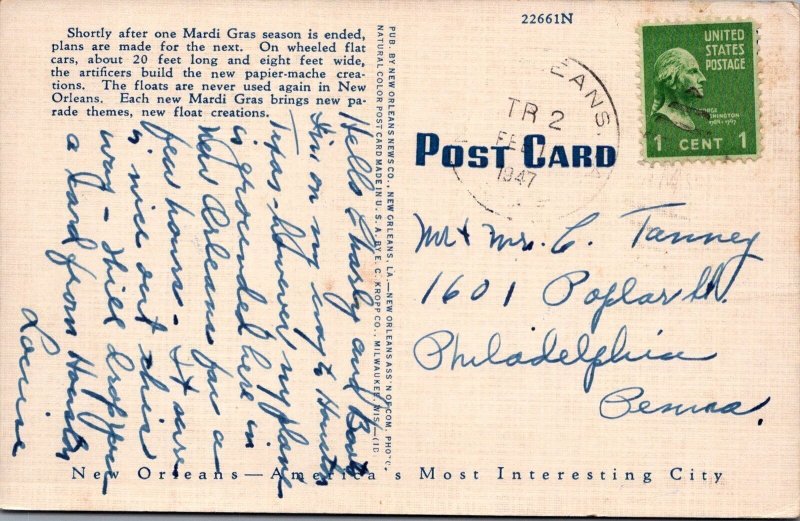 Shortly after one Mardi Gras season is ended,
plans are made for the next. On wheeled flat
cars, about 20 feet long and eight feet wide,
the artificers build the new papier-mache crea-
tions. The floats are never used again in New
Orleans. Each new Mardi Gras brings new pa-
rade themes, new float creations.
Hello Charley and Bart
I'm on my way to Houston
Texas - however, my plane
is grounded here in
New Orleans for a
few hours - It sure
is nice out this
way - I'll drop you
a card from Houston
Louise
PUB. BY NEW ORLEANS NEWS CO., NEW ORLEANS, LA.—NEW ORLEANS ASS'N OF COM. PHOTO.
NATURAL COLOR POST CARD MADE IN U. S. A. BY E. C. KROPP CO., MILWAUKEE, WIS.
22661N
EANS.
TR 2
FEB
1947
UNITED
STATES
POSTAGE
1 CENT 1
POST CARD
Mr + Mrs. C. Tanney
1601 Poplar St.
Philadelphia
Penna.
New Orleans—America's Most Interesting City